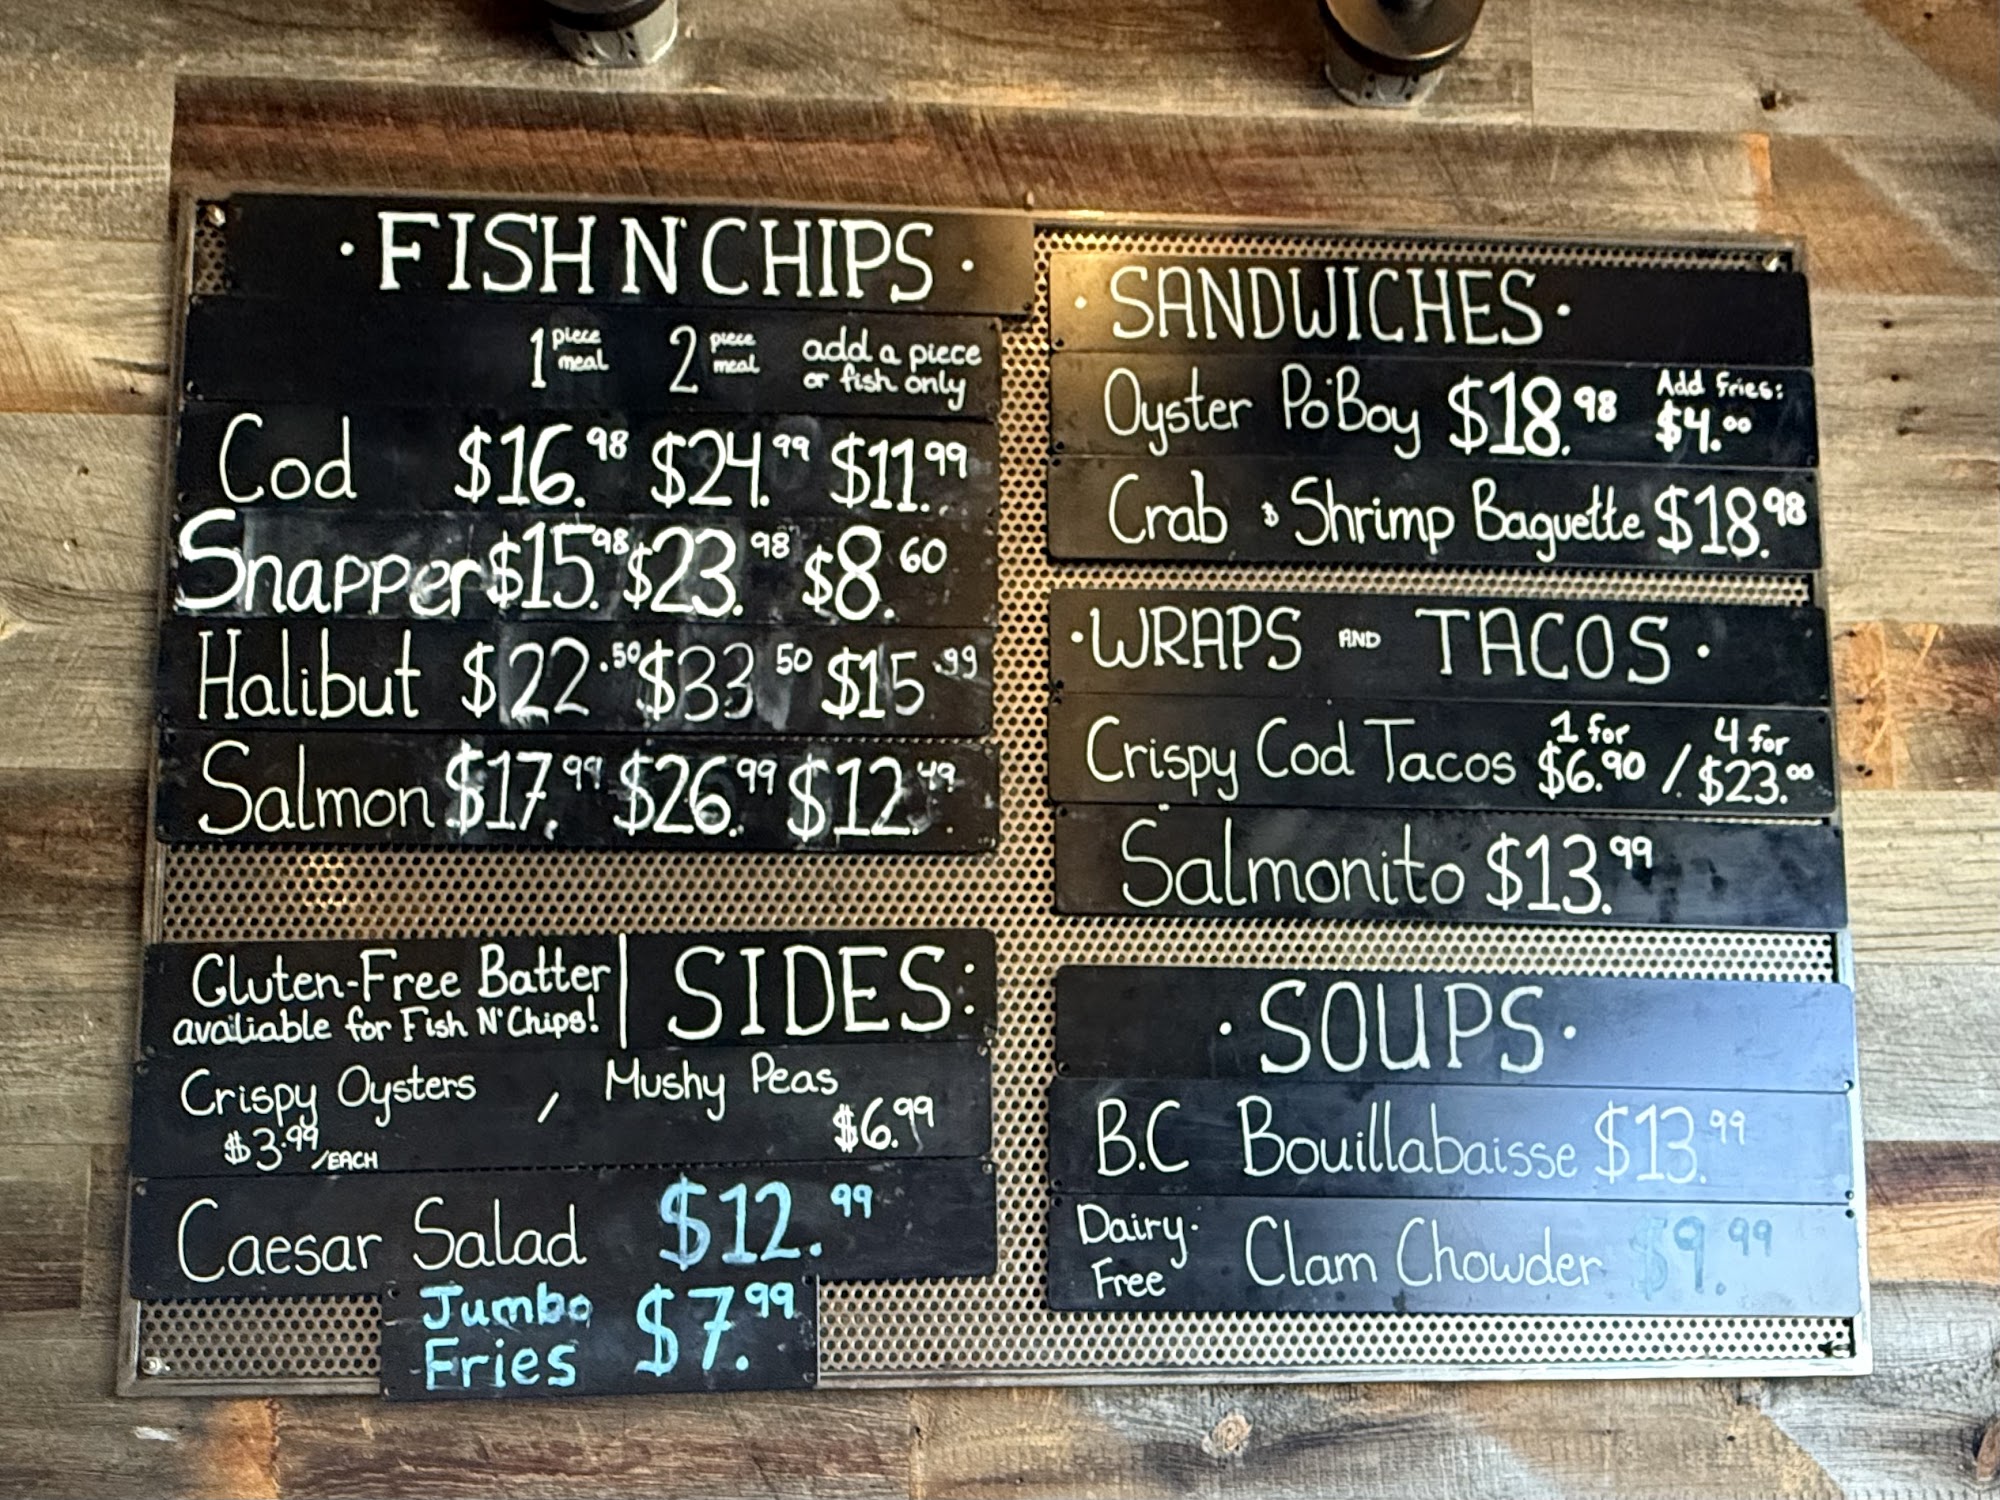 · FISH N' CHIPS ·
1 piece meal 2 piece meal add a piece or fish only
Cod $16.98 $24.99 $11.99
Snapper $15.98 $23.98 $8.60
Halibut $22.50 $33.50 $15.99
Salmon $17.99 $26.99 $12.49
Gluten-Free Batter
availiable for Fish N' Chips!
SIDES:
Crispy Oysters / Mushy Peas
$3.99/EACH $6.99
Caesar Salad $12.99
Jumbo
Fries $7.99
· SANDWICHES ·
Oyster Po'Boy $18.98 Add Fries: $4.00
Crab & Shrimp Baguette $18.98
· WRAPS AND TACOS ·
Crispy Cod Tacos 1 for $6.90 / 4 for $23.00
Salmonito $13.99
· SOUPS ·
B.C Bouillabaisse $13.99
Dairy-Free Clam Chowder $9.99